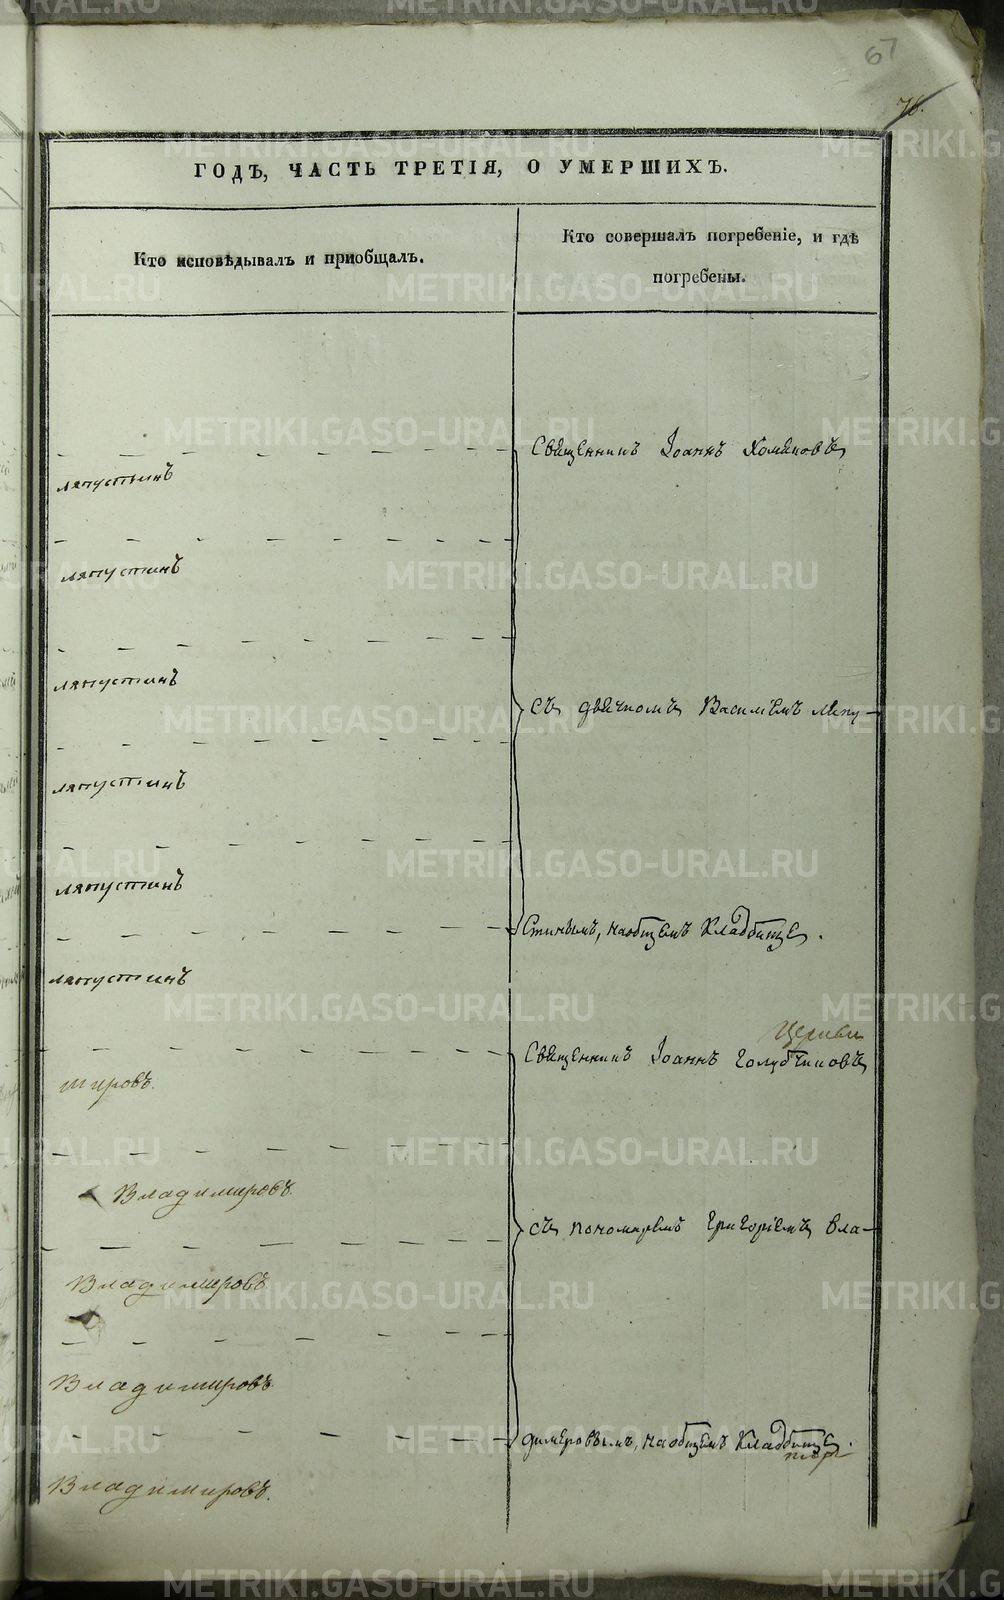 67
76.
ГОДЪ, ЧАСТЬ ТРЕТІЯ, О УМЕРШИХЪ.
Кто исповѣдывалъ и пріобщалъ.
Кто совершалъ погребеніе, и гдѣ
погребены.
Священникъ Іоаннъ Хомяковъ
ляпустинъ
ляпустинъ
ляпустинъ
съ дьячкомъ Василіемъ ляпу-
ляпустинъ
ляпустинъ
стинымъ, на общемъ кладбище.
ляпустинъ
церкви
Священникъ Іоаннъ Голубчиковъ
мировъ
Владимировъ
съ пономаремъ Григоріемъ Вла-
Владимировъ
Владимировъ
димеровымъ, на общемъ кладбище.
Владимировъ.
METRIKI.GASO-URAL.RU